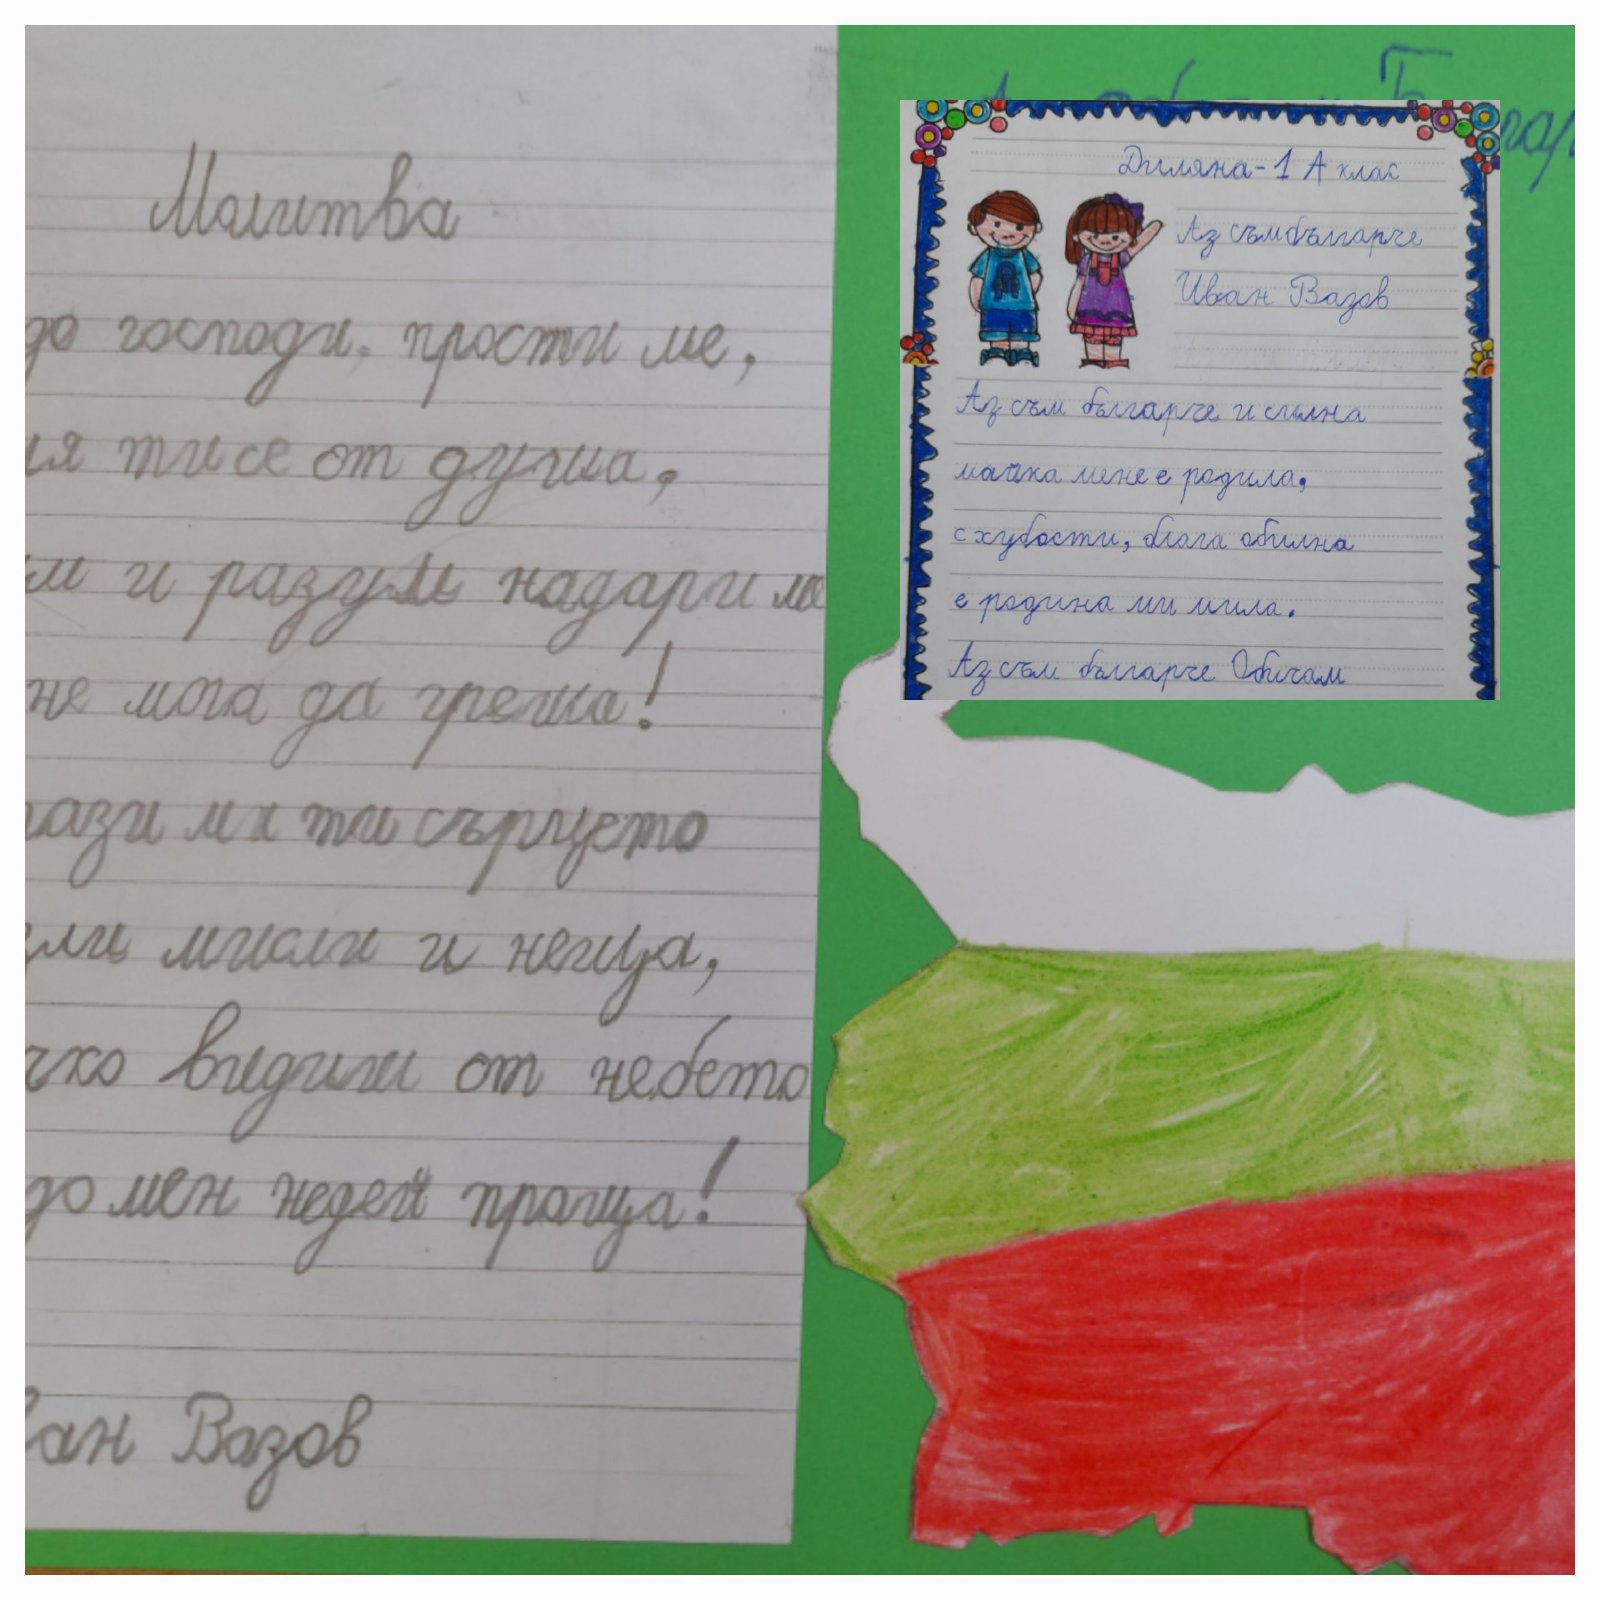 Молитва
до господи, прости ме,
ия ти се от душа,
м и разум надари ме
не мога да греша!
пази ми ти сърцето
ли мисли и неща,
чко видиш от небето
до мен недей праща!
ван Вазов
Диляна-1 А клас
Аз съм българче
Иван Вазов
Аз съм българче и силна
майка мене е родила,
с хубости, блага обилна
е родина ми мила.
Аз съм българче Обичам